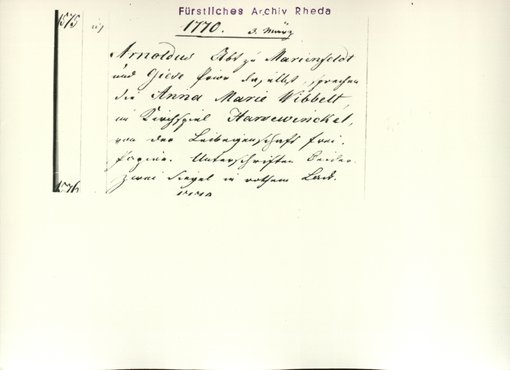 Fürstliches Archiv Rheda
1575
1770. 3. März
Arnoldus Abt zu Marienfeldt
und Giese Prior daselbst, sprechen
die Anna Marie Wibbelt,
im Kirchspiel Harsewinckel,
von der Leibeigenschaft frei.
Unterschriften beider.
zwei Siegel in rothem Lack.
1576